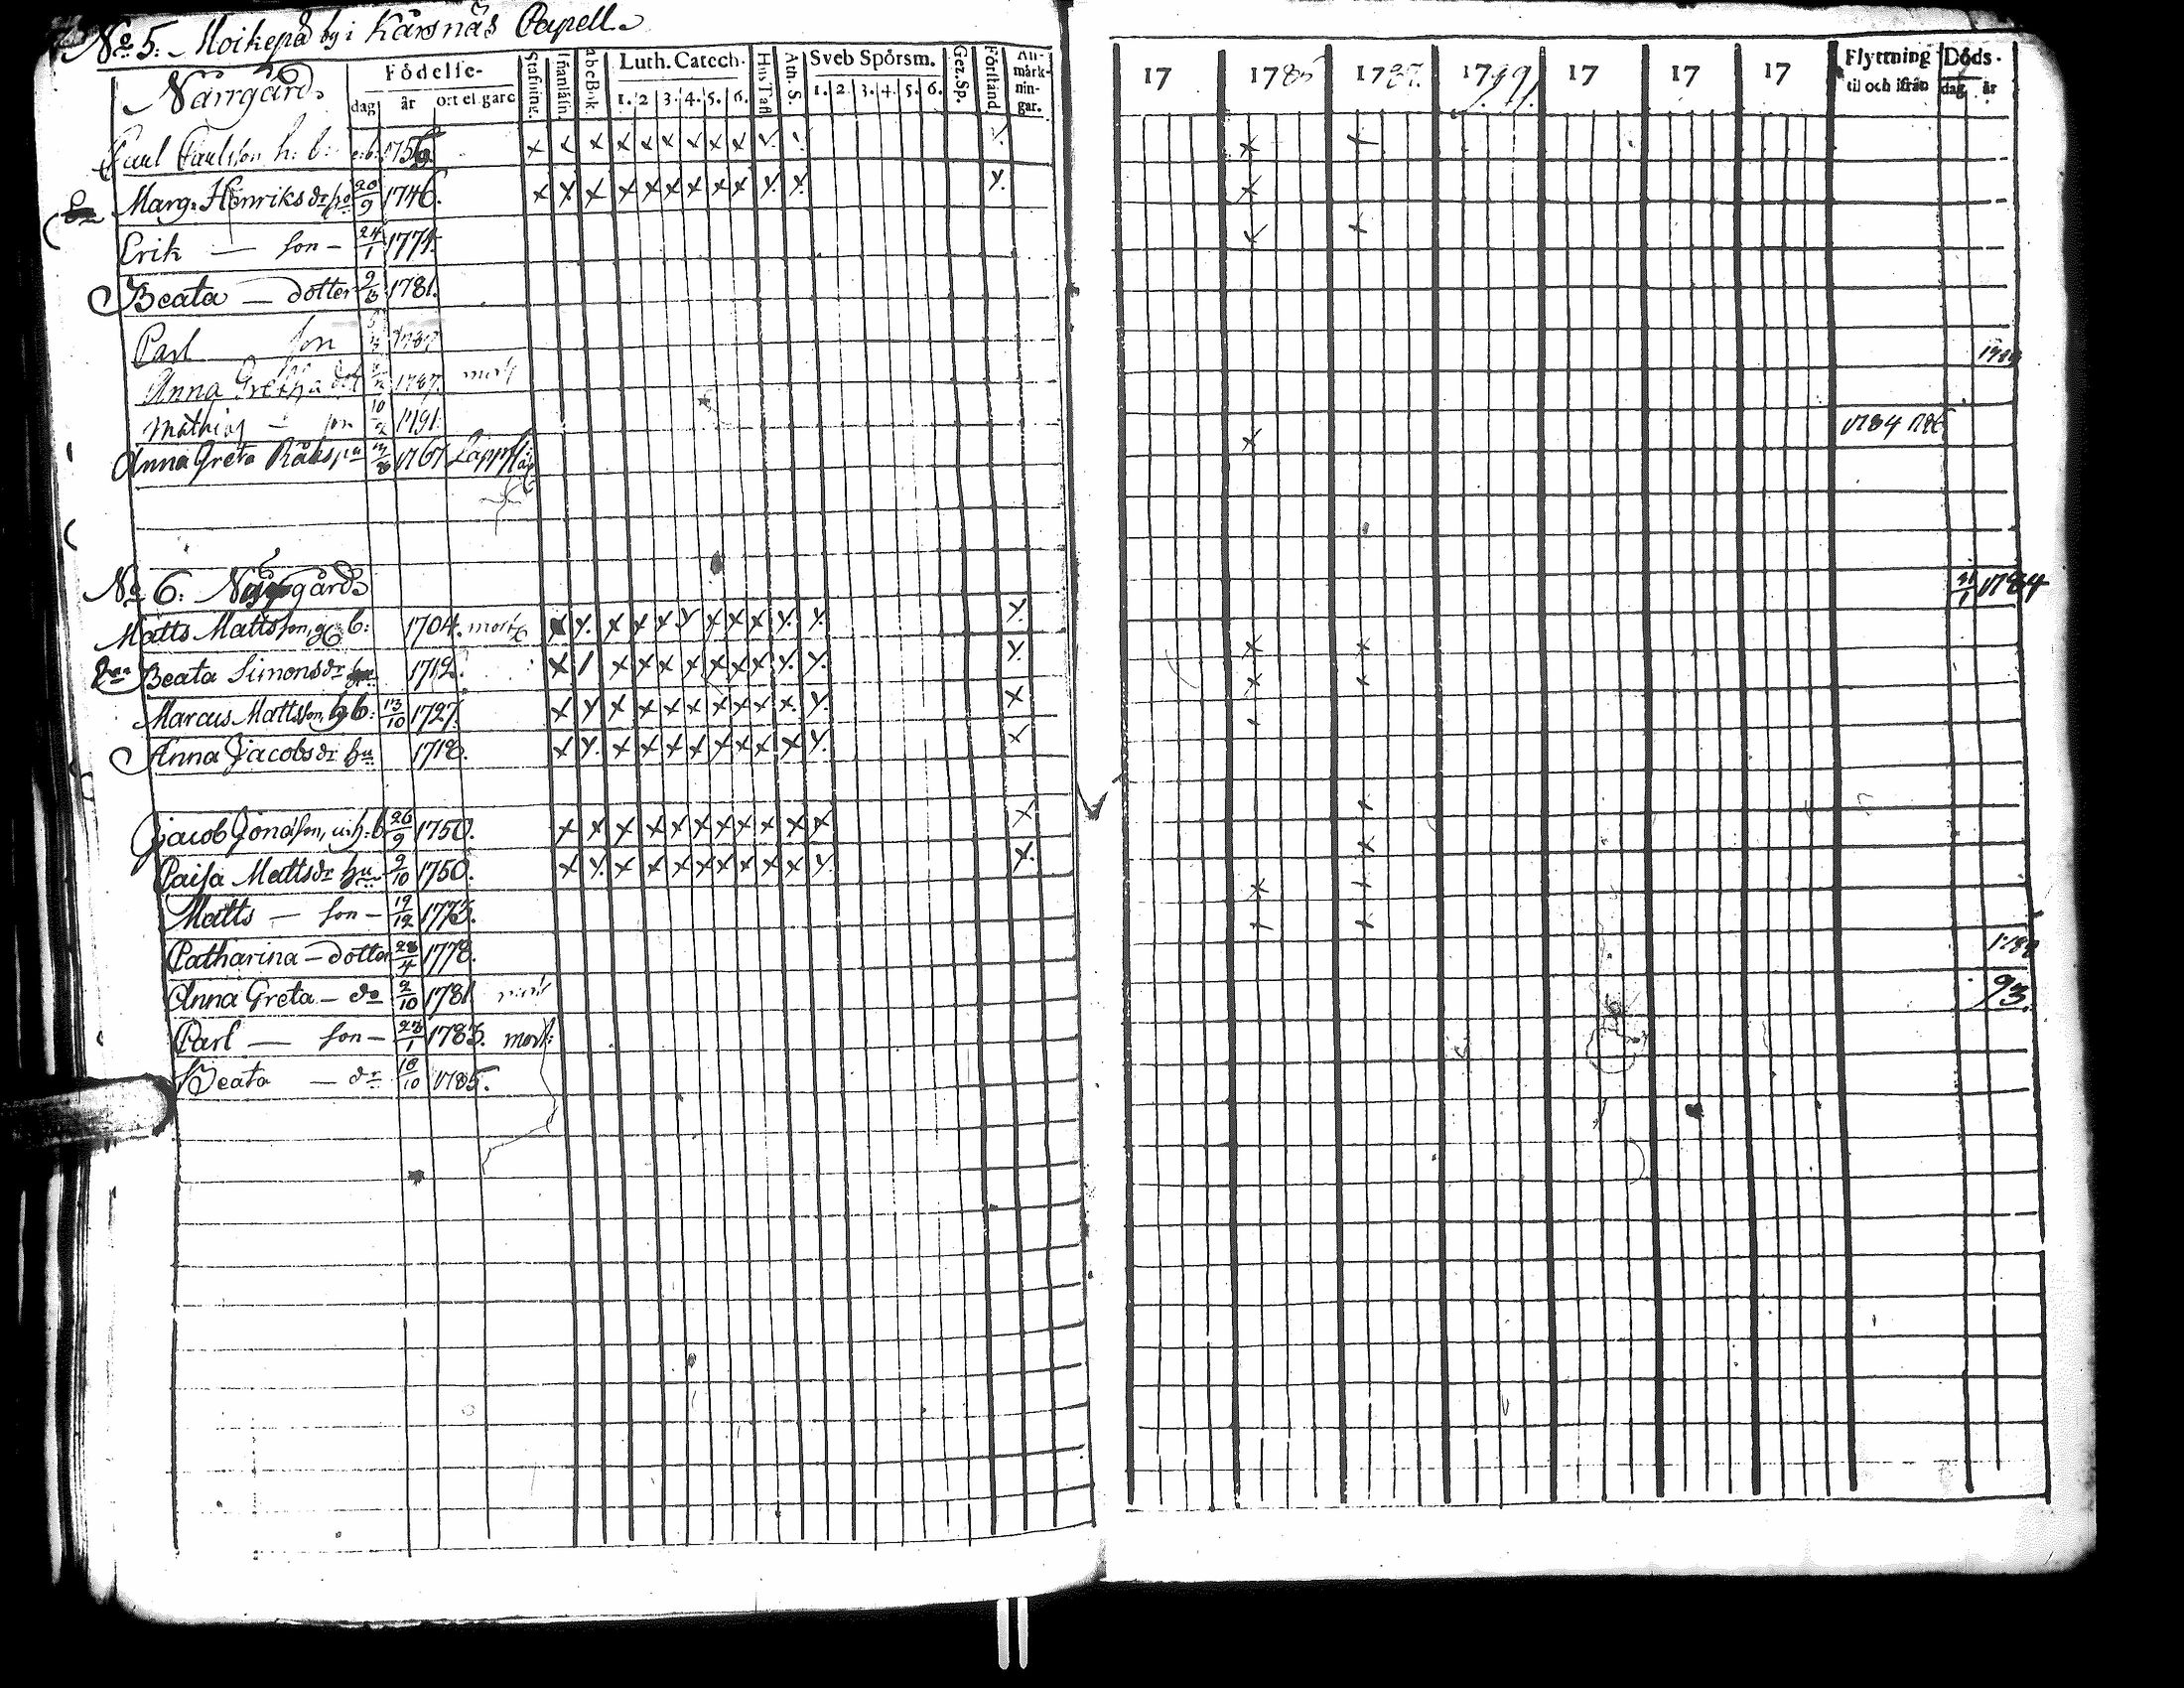 No 5. Moikepä by i Kårsnäs Capell.
Närrgård. Födelse- Stafning. Iñanläsn. abcBok. Luth. Catech. Hus Tafl. Ath. S. Sveb Spörsm. Gez. Sp. Förstånd An-märk-nin-gar. 17 1785 1787. 1791. 17 17 17 Flyttning til och ifrån Döds-
dag år ort el. gård 1. 2 3. 4. 5. 6. 1. 2. 3. 4. 5. 6. dag år
Carl Carlsson h: b: 1759. x x x x x x x x x x x
Marg. Henriksdr hu 20/9 1746. x x x x x x x x x x x x x
Erik — son — 24/1 1774. x x
Beata — dotter 1781.
Carl son 1787
Anna Gretha dot 1787. mort
Mathias — son 10/2 1791.
Anna Greta 1767 Lappfl x 1784 1786
No 6. gård
Matts Mattsson, g b: 1704. mort x x x x x x x x x x x 31/1 1784
Beata Simonsdr 1712. x x x x x x x x x x x x
Marcus Mattsson, h b: 13/10 1727. x x x x x x x x x x x x x x
Anna Jacobsdr hu 1718. x x x x x x x x x x x x
Jacob Jönsson, u: h: b 26/9 1750. x x x x x x x x x x x x x
Caisa Mattsdr hu 9/10 1750. x x x x x x x x x x x x x
Matts — son — 19/12 1773. x x
Catharina — dotter 28/4 1778. x x
Anna Greta — do 2/10 1781 mort
Carl — son — 23/1 1783. mort: 93.
Beata — dr 18/10 1785.